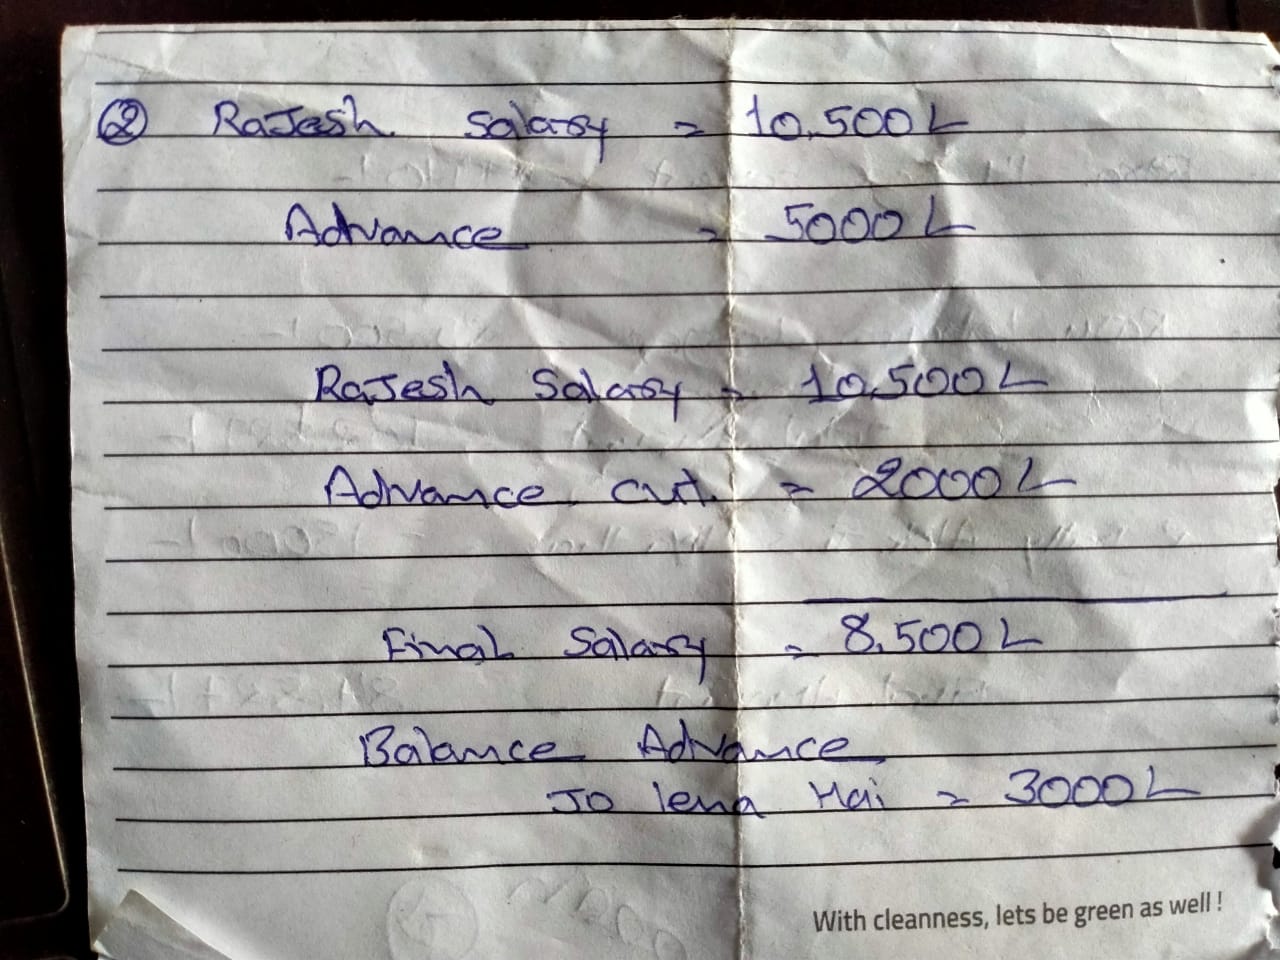 ② Rajesh Salary = 10,500/-
Advance = 5000/-
Rajesh Salary = 10,500/-
Advance cut. = 2000/-
Final Salary = 8,500/-
Balance Advance
Jo lena Hai = 3000/-
With cleanness, lets be green as well !